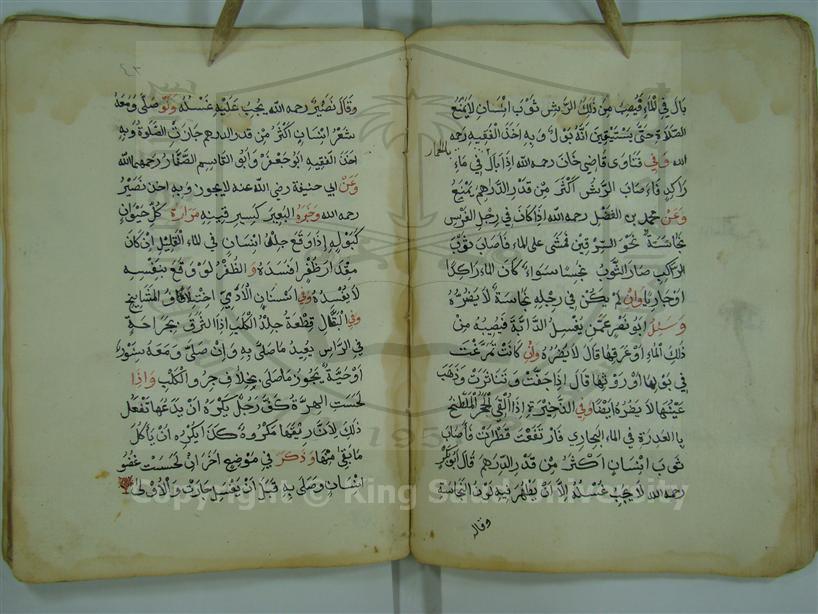 بال في الماء فيصيب من ذلك الرش ثوب انسان لا يمنع
الصلاة حتى يستيقين انه بول وبه اخذ الفقيه رحمه
الله وفي فتاوى قاضي خان رحمه الله اذا بال في ماء
بالحمار
راكد فاصاب الرش اكثر من قدر الدراهم يمنع
وعن محمد بن الفضل رحمه الله اذا كان في رجل الفرس
نجاسة نحو السرقين فمشى على الماء فاصاب ثوب
الراكب صار الثوب نجسا سواء كان الماء راكدا
او جاريا وان لم يكن في رجله نجاسة لا يضره
وسئل ابو نصر عمن يغسل الدابة فيصيبه من
ذلك الماء او عرقها قال لا يضره وان كانت تمرغت
في بولها او روثها قال اذا جفت وتناثرت وذهب
عينها لا يضره ايضا وفي الذخيرة اذا القي الحجر الملطخ
بالعذرة في الماء الجاري فارتفعت قطرات فاصاب
ثوب انسان اكثر من قدر الدرهم قال ابو بكر
رحمه الله لا يجب غسله الا ان يظهر فيه لون النجاسة
وقال
وقال نصير رحمه الله يجب عليه غسله ولو صلى ومعه
شعر انسان اكثر من قدر الدرهم جازت الصلوة وبه
اخذ الفقيه ابو جعفر وابو القاسم الصفار رحمهما الله
وعن ابي حنيفة رضي الله عنه لا يجوز وبه اخذ نصير
رحمه الله البعير كسرقينه مرارة كل حيوان
كبوله اذا وقع جلد انسان في الماء القليل ان كان
مقدار ظفر افسده والظفر لو وقع بنفسه
لا يفسده وفي اسنان الآدمي اختلاف المشايخ
وفي قطعة جلد الكلب اذا التزق بجراحة
في الراس يعيد ما صلى به وان صلى ومعه سنور
او حية يجوز ما صلى بخلاف جرو الكلب واذا
لحست الهرة كف رجل يكره ان يدعها تفعل
ذلك لان ريقها مكروه كذا يكره ان ياكل
ما بقي منها وذكر في موضع اخر ان لحست عضو
انسان وصلى به قبل ان يغسل جازت والاولى
Copyright © King Saud University
1957